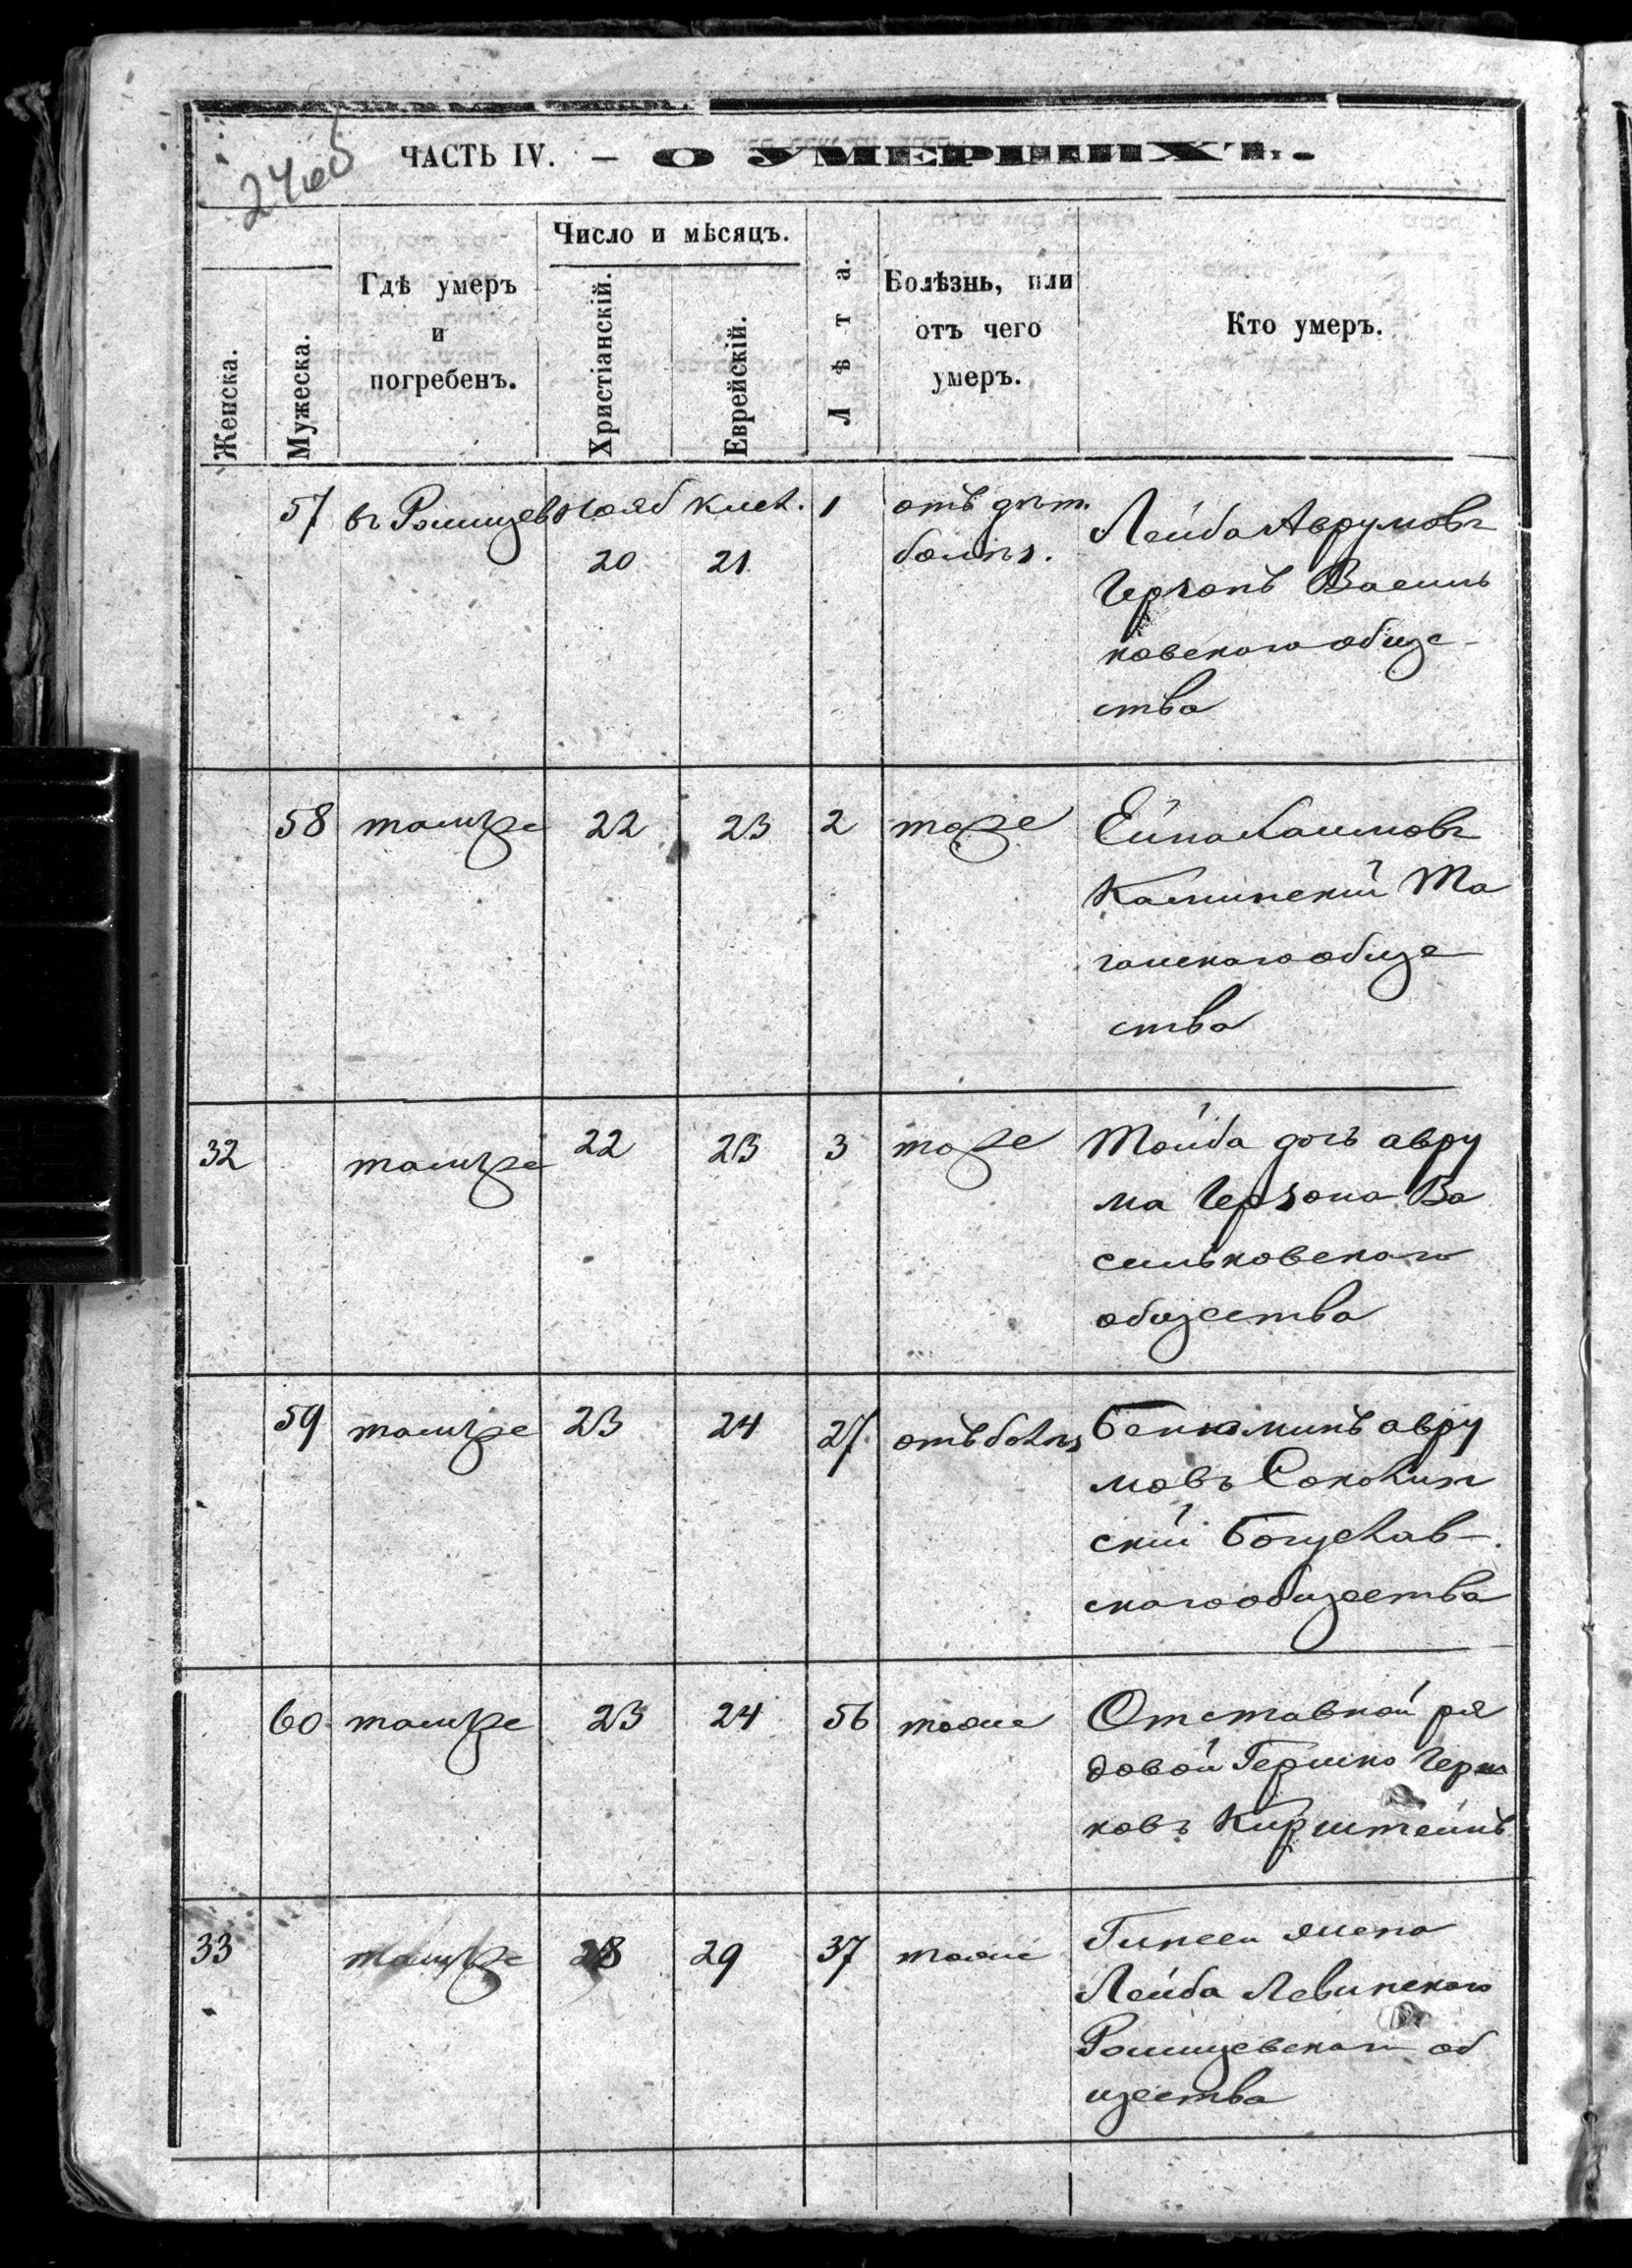 24об
ЧАСТЬ IV. — О УМЕРШИХЪ.
Женска.
Мужеска.
Гдѣ умеръ
и
погребенъ.
Число и мѣсяцъ.
Христіанскій.
Еврейскій.
Лѣта.
Болѣзнь, или
отъ чего
умеръ.
Кто умеръ.
57 въ Рокицев нояб кисл. 1 отъ дѣт.
20 21 болѣз.
Лейба Аврумовъ
Герзонъ Василь
ковскаго обще-
ства
58 тамже 22 23 2 тоже
Хаимовъ
Каминскій Та
ганскаго обще
ства
32 тамже 22 23 3 тоже
Тойба дочъ авру
ма Герзона Ва
сильковскаго
общества
59 тамже 23 24 27 отъ болѣз
Бенюминъ авру
мовъ Соколин
скій Богуслав-
скаго общества
60 тамже 23 24 56 тоже
Отставной ря
довой Гершко Герш
ковъ Кирштейнъ
33 тамже 28 29 37 тоже
жена
Лейба Левинскаго
об
щества